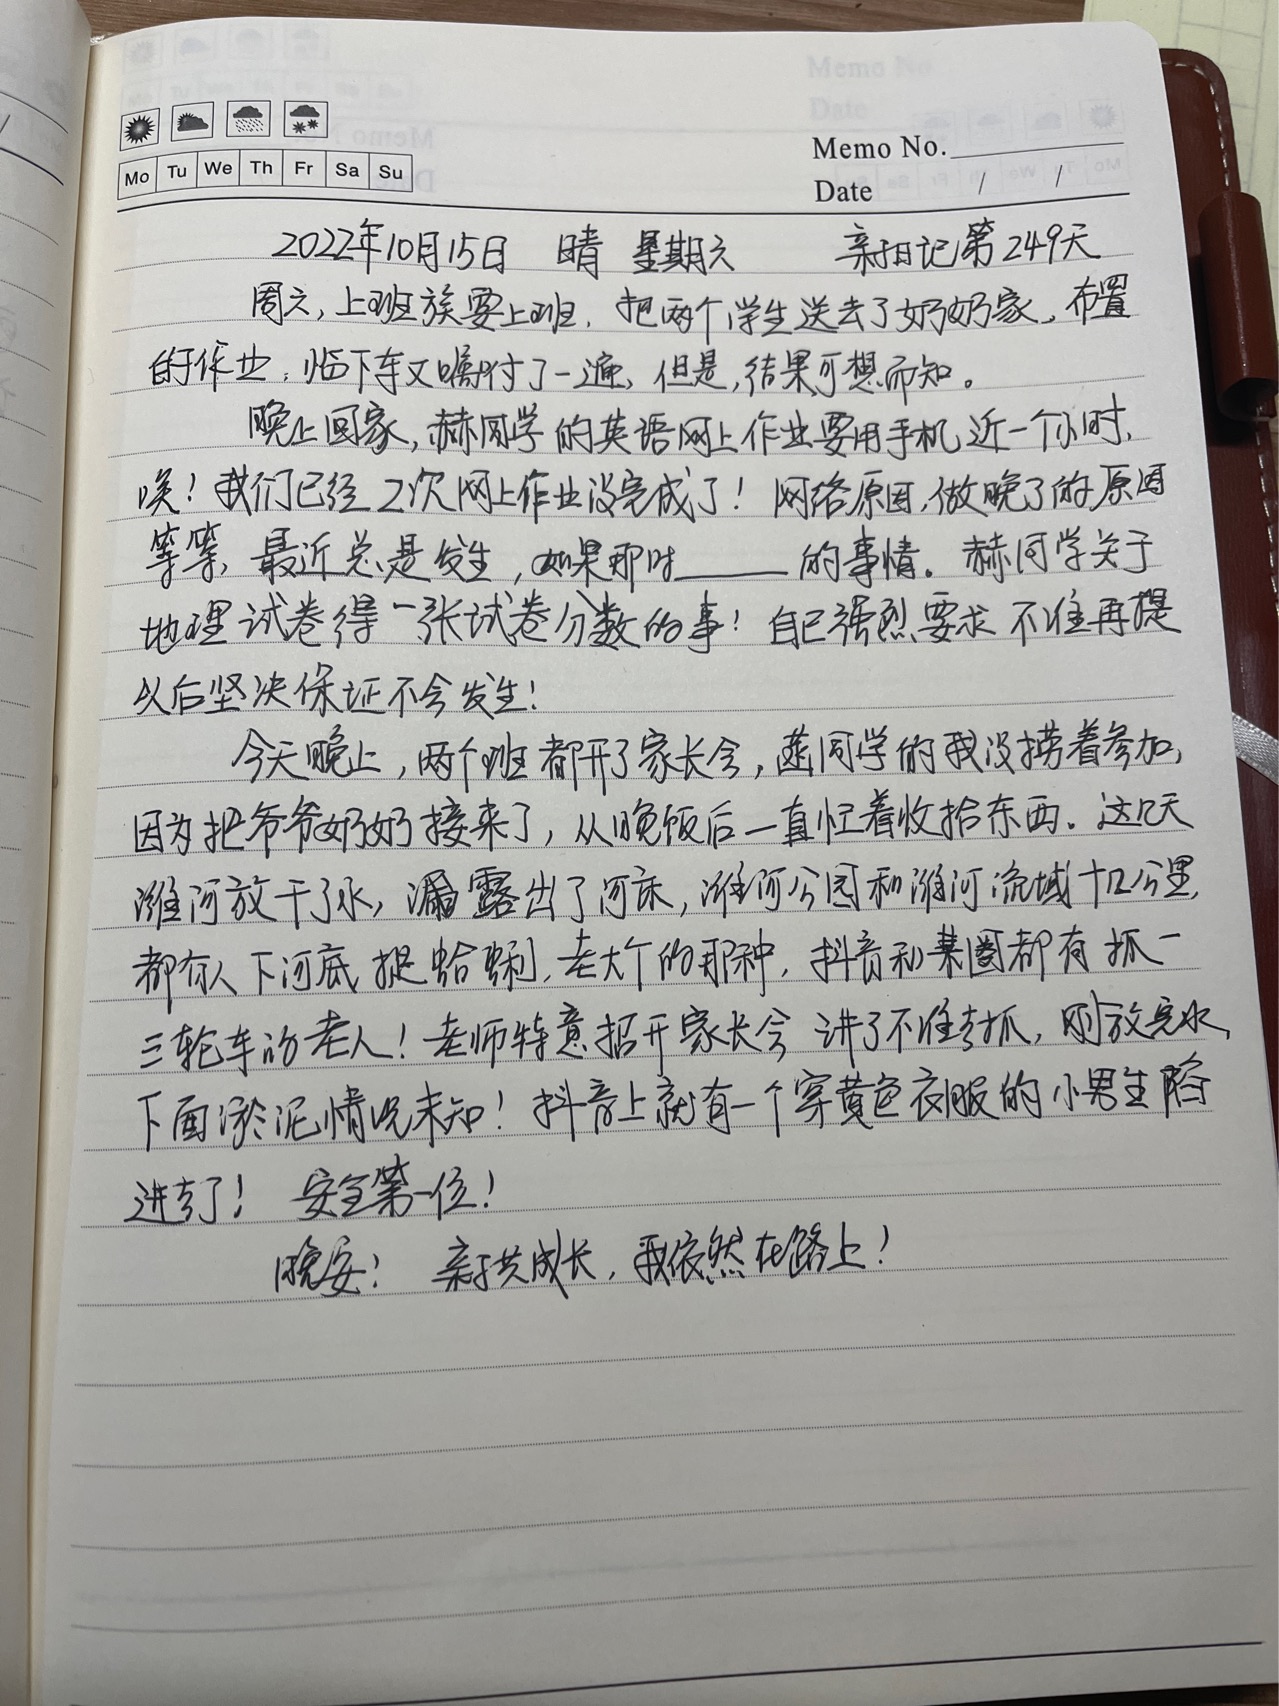 Mo Tu We Th Fr Sa Su
Memo No.
Date / /
2022年10月15日 晴 星期六 亲子日记第249天
周六,上班族要上班,把两个学生送去了奶奶家,布置
的作业,临下车又嘱咐了一遍,但是,结果可想而知。
晚上回家,赫同学的英语网上作业要用手机近一个小时,
唉!我们已经2次网上作业没完成了!网络原因,做晚了的原因
等等,最近总是发生,如果那时____的事情。赫同学关于
地理试卷得一张试卷分数的事!自己强烈要求不准再提
以后坚决保证不会发生!
今天晚上,两个班都开了家长会,菡同学的我没捞着参加,
因为把爷爷奶奶接来了,从晚饭后一直忙着收拾东西。这几天
潍河放干了水,漏露出了河床,潍河公园和潍河流域十几公里,
都有人下河底捉蛤蜊,老大个的那种,抖音和某圈都有抓一
三轮车的老人!老师特意招开家长会 讲了不准去抓,刚放完水,
下面淤泥情况未知!抖音上就有一个穿黄色衣服的小男生陷
进去了! 安全第一位!
晚安! 亲子共成长,我依然在路上!